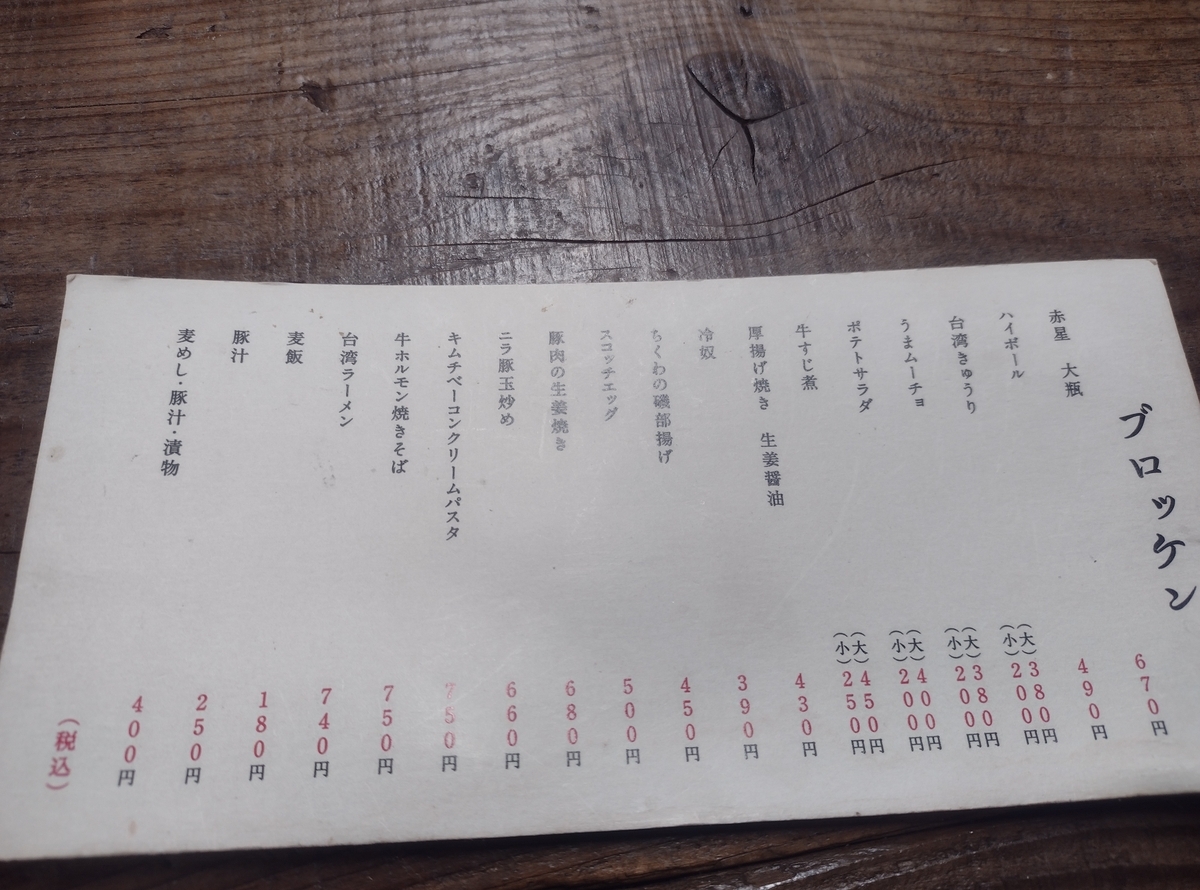 ブロッケン
赤星　大瓶 670円
ハイボール 490円
台湾きゅうり (大)380円
(小)200円
うまムーチョ (大)380円
(小)200円
ポテトサラダ (大)400円
(小)200円
牛すじ煮 (大)450円
(小)250円
厚揚げ焼き　生姜醤油 430円
冷奴 390円
ちくわの磯部揚げ 450円
スコッチエッグ 500円
豚肉の生姜焼き 680円
ニラ豚玉炒め 660円
キムチベーコンクリームパスタ
牛ホルモン焼きそば 750円
台湾ラーメン 740円
麦飯 180円
豚汁 250円
麦めし・豚汁・漬物 400円
(税込)